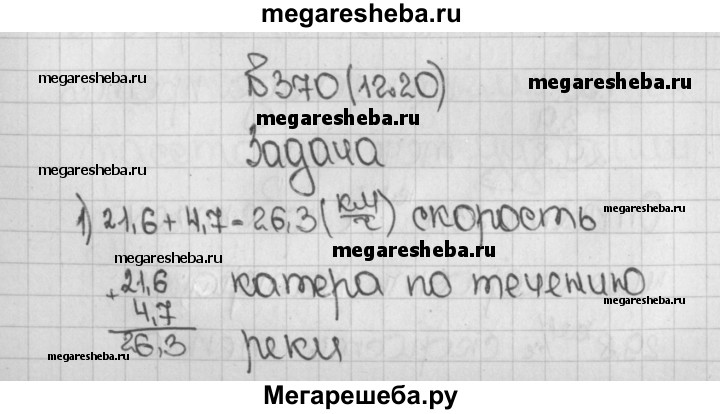 megaresheba.ru
megaresheba.ru
megaresheba.ru
В370(12.20)
megaresheba.ru
Задача
megaresheba.ru
1) 21,6 + 4,7 = 26,3 (км/ч) скорость
megaresheba.ru
megaresheba.ru
+ 21,6 катера по течению
4,7
26,3 реки
megaresheba.ru
megaresheba.ru
Мегарешеба.ру